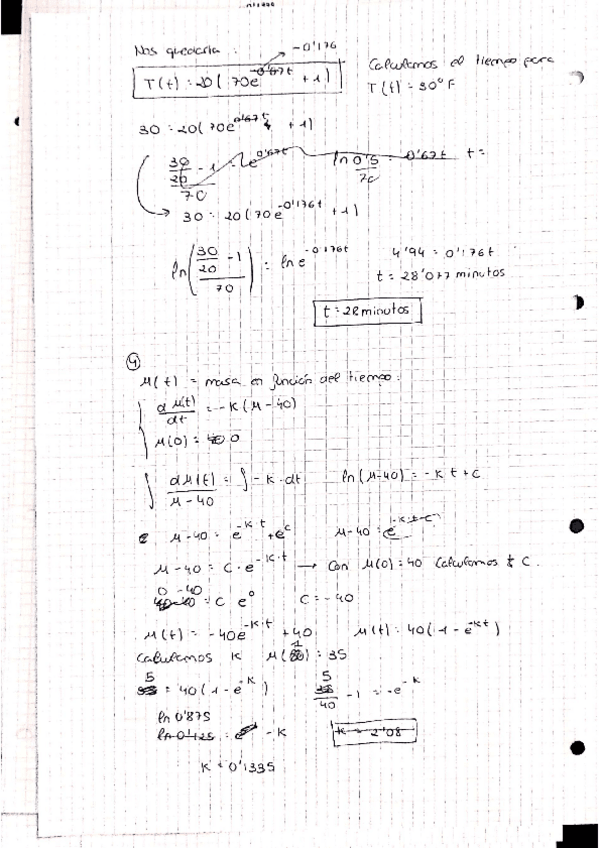 Nos quedaría : -0'176
T(t) = 20( 70e^-0'67t + 1)
Calculamos el tiempo para
T(t) = 30°F
30 = 20(70e^0'67t + 1)
30/20 - 1 = e^0'67t
70
ln 0'5/70 = 0'67t t =
30 = 20(70e^-0'176t + 1)
ln((30/20 - 1)/70) = ln e^-0'176t
4'94 = 0'176t
t = 28'077 minutos
t = 28 minutos
4
M(t) = masa en función del tiempo.
dM(t)/dt = -K(M-40)
M(0) = 0
∫ dM(t)/(M-40) = ∫ -K·dt ln(M-40) = -Kt + C
M-40 = e^-K·t + e^C M-40 = e^-K·t-C
M-40 = C·e^-K·t → Con M(0) = 40 Calculamos C.
0 -40 = C e^0 C = -40
M(t) = -40e^-K·t + 40 M(t) = 40(1-e^-Kt)
Calculamos K M(1) = 35
5 = 40(1-e^-K) 5/40 - 1 = -e^-K
ln 0'875
ln 0'125 = -K K = 2'08
K = 0'1335